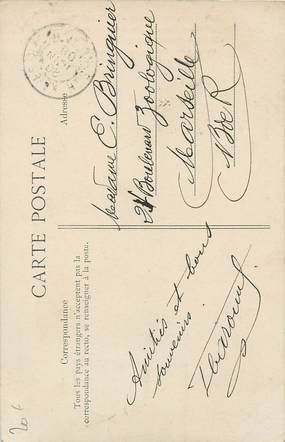 CARTE POSTALE
Correspondance
Tous les pays étrangers n'acceptent pas la
correspondance au recto, se renseigner à la poste.
Adresse
Madame E. Bringuier
24 Boulevard Zoologique
Marseille
B de R
Amitiés et bons
souvenirs.
20 f